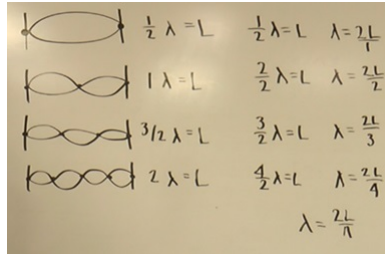 1/2 λ = L 1/2 λ = L λ = 2L/1
1 λ = L 2/2 λ = L λ = 2L/2
3/2 λ = L 3/2 λ = L λ = 2L/3
2 λ = L 4/2 λ = L λ = 2L/4
λ = 2L/n